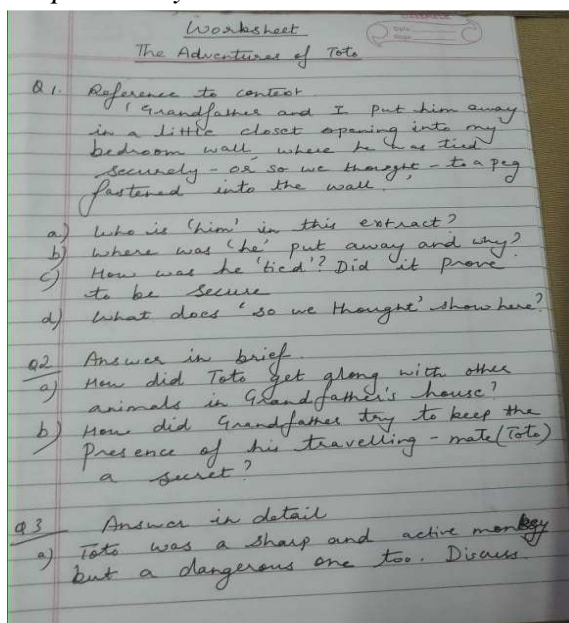 Worksheet
The Adventures of Toto
Q1. Reference to context
'Grandfather and I put him away
in a little closet opening into my
bedroom wall, where he was tied
securely - or so we thought - to a peg
fastened into the wall.'
a) Who is 'him' in this extract?
b) Where was 'he' put away and why?
c) How was he 'tied'? Did it prove
to be secure
d) What does 'so we thought' show here?
Q2 Answer in brief
a) How did Toto get along with other
animals in Grandfather's house?
b) How did Grandfather try to keep the
Presence of his travelling - mate (Toto)
a secret?
Q3 Answer in detail
a) Toto was a sharp and active monkey
but a dangerous one too. Discuss